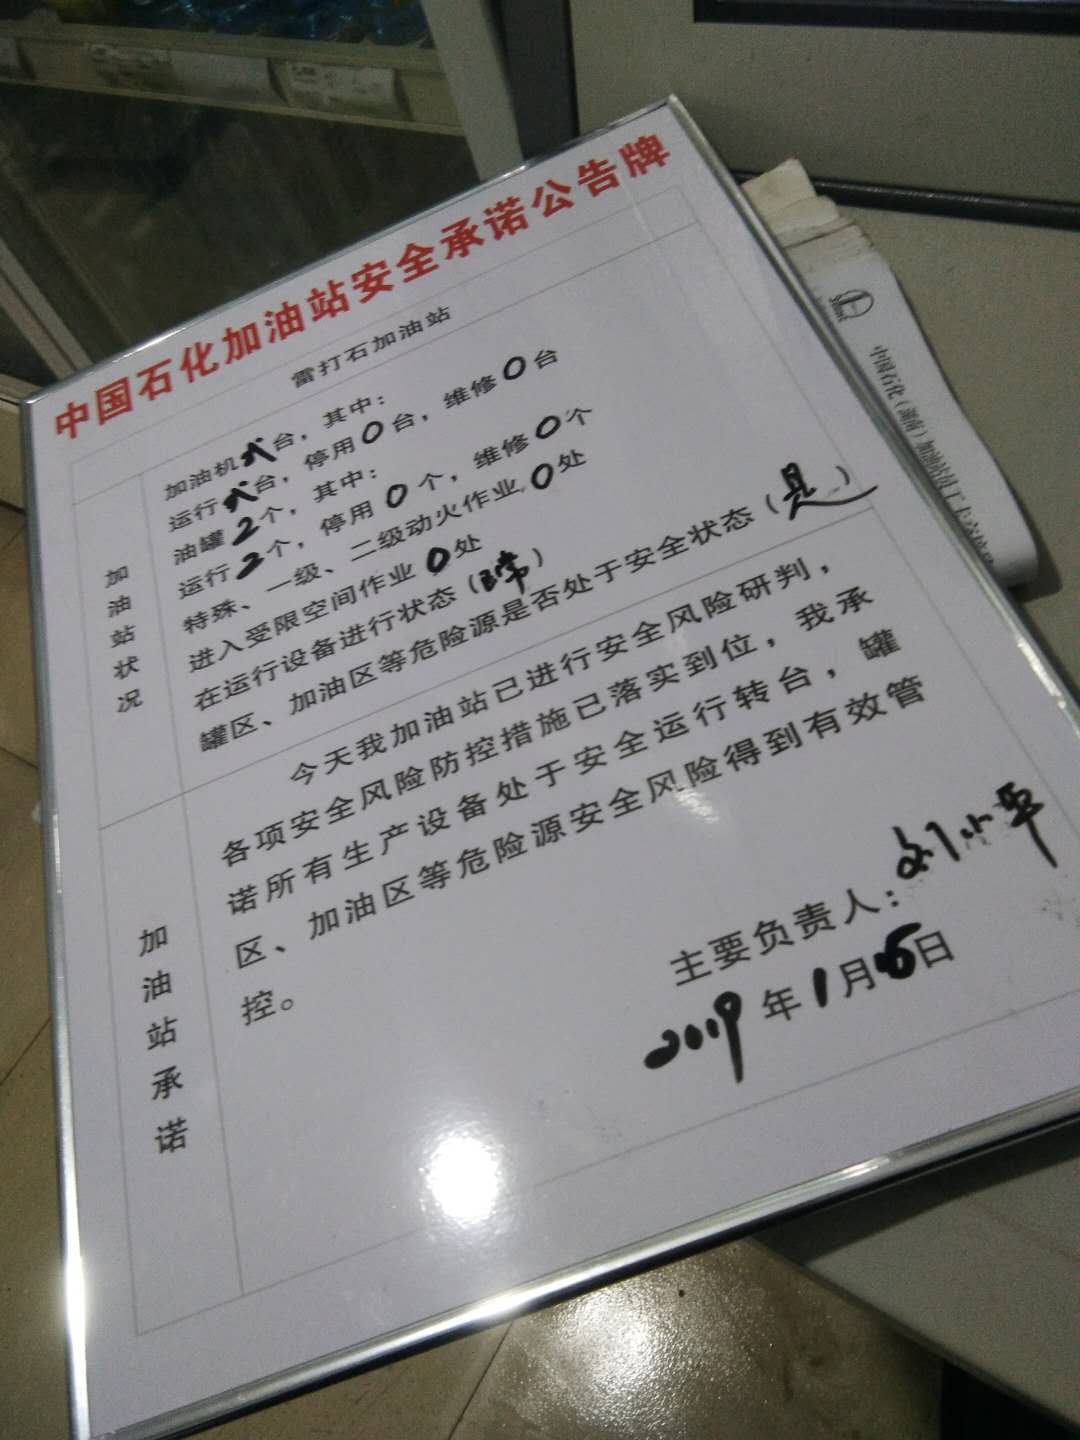 中国石化加油站安全承诺公告牌
雷打石加油站
加油站状况
加油机 台，其中：
运行 台，停用0台，维修0台
油罐2个，其中：
运行2个，停用0个，维修0个
特殊、一级、二级动火作业0处
进入受限空间作业0处
在运行设备进行状态（正常）
罐区、加油区等危险源是否处于安全状态（是）
加油站承诺
今天我加油站已进行安全风险研判，
各项安全风险防控措施已落实到位，我承
诺所有生产设备处于安全运行转台，罐
区、加油区等危险源安全风险得到有效管
控。
主要负责人：刘小平
2019年1月 日
中国石化（湖南）加油站员工